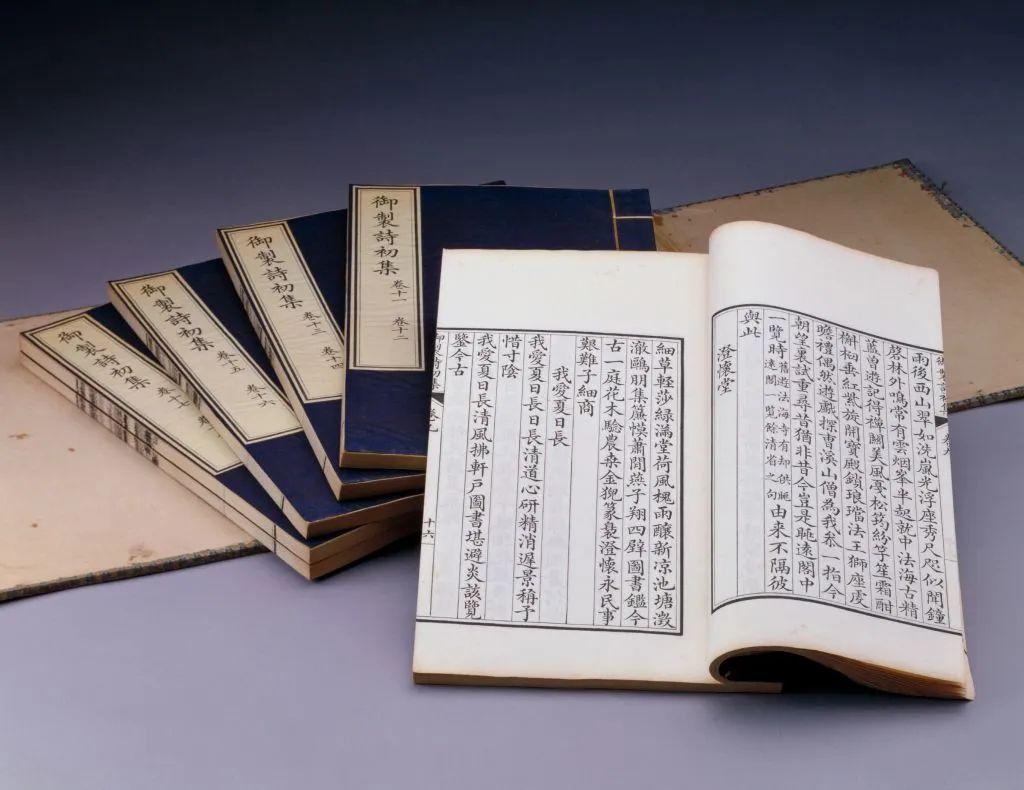 御製詩初集 卷十一 卷十二
御製詩初集 卷十三 卷十四
御製詩初集 卷十五 卷十六
御製詩初集 卷十七
雨後西山翠如洗嵐光浮座秀尺咫似聞鐘
磬林外鳴常有雲烟峯半起就中法海古精
藍曾遊記得禪關美風戞松筠紛竽笙霜酣
槲柏垂紅紫旅開寶殿鎖琅璫法王獅座虔
瞻禮偶然遊戲探曹溪山僧為我叅一指今
朝望裏試重尋昔猶非昔今豈是眺遠閣中
一覽時 舊遊法海寺有却供眺遠閣一覽餘清省之句 由來不隔彼
與此
澄懷堂
細草輕莎綠滿堂荷風槐雨釀新凉池塘澂
瀲鷗朋集簾幙蕭閒燕子翔四壁圖書鑑今
古一庭花木驗農桒金猊篆裊澄懷永民事
艱難子細商
我愛夏日長
我愛夏日長日長清道心研精消遲景稱予
惜寸陰
我愛夏日長清風拂軒戶圖書堪避炎該覽
鑒今古
御製詩初集 卷九 十六